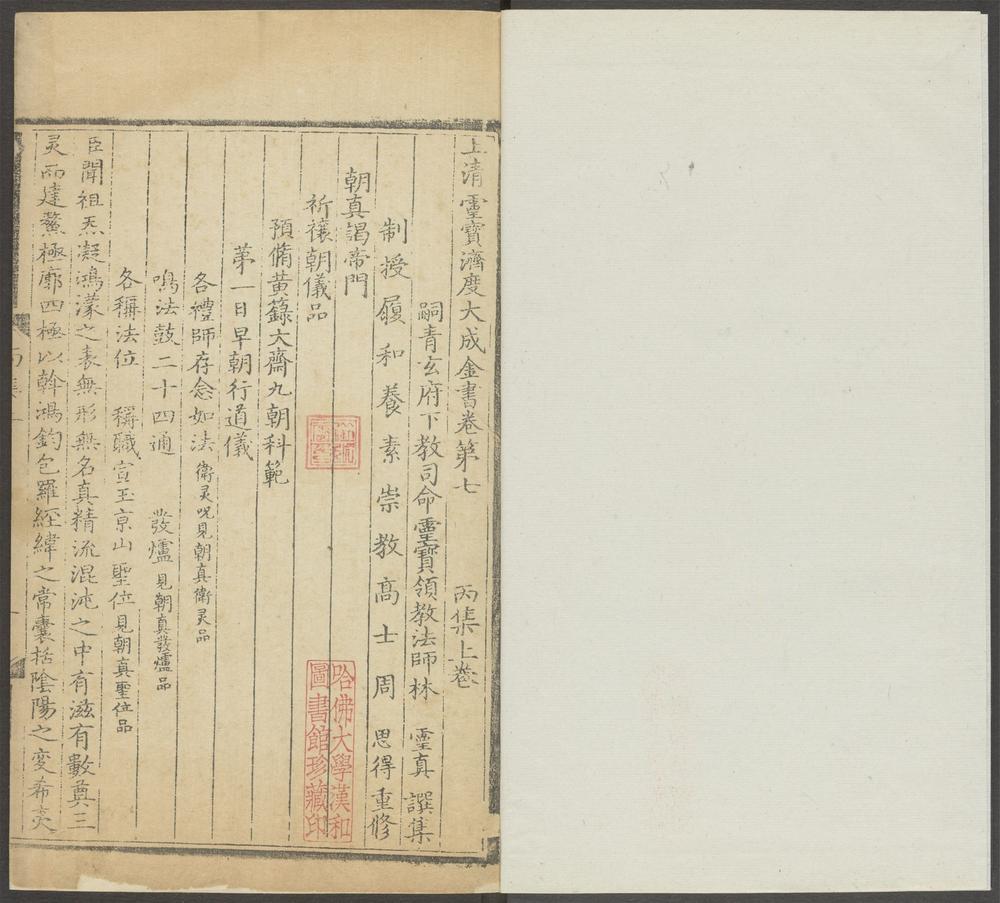 上清靈寶濟度大成金書卷第七 丙集上卷
嗣青玄府下教司命靈寶領教法師林 靈真 譔集
制授履和養素崇教高士周 思得重修
朝真謁帝門
祈禳朝儀品
預脩黄籙大齋九朝科範
苐一日早朝行道儀
各禮師存念如法 衛灵呪見朝真衛灵品
鳴法鼓二十四通 發爐 見朝真發爐品
各稱法位 稱職宣玉京山聖位見朝真聖位品
臣聞祖炁凝鴻濛之表無形無名真精流混沌之中有滋有數奠三
灵而建鰲極廓四極以斡鴻鈞包羅經緯之常囊括陰陽之変希夷
哈佛大學漢和
圖書館珍藏印